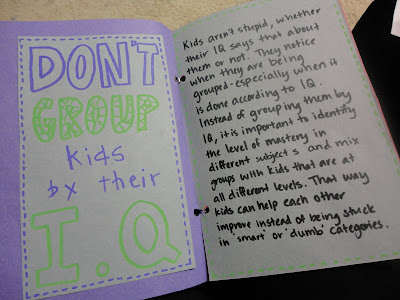 DON'T
GROUP
kids
by their
I.Q
Kids aren't stupid, whether
their IQ says that about
them or not. They notice
when they are being
grouped-especially when it
is done according to IQ.
Instead of grouping them by
IQ, it is important to identify
the level of mastery in
different subjects and mix
groups with kids that are at
all different levels. That way
kids can help each other
improve instead of being stuck
in 'smart' or 'dumb' categories.